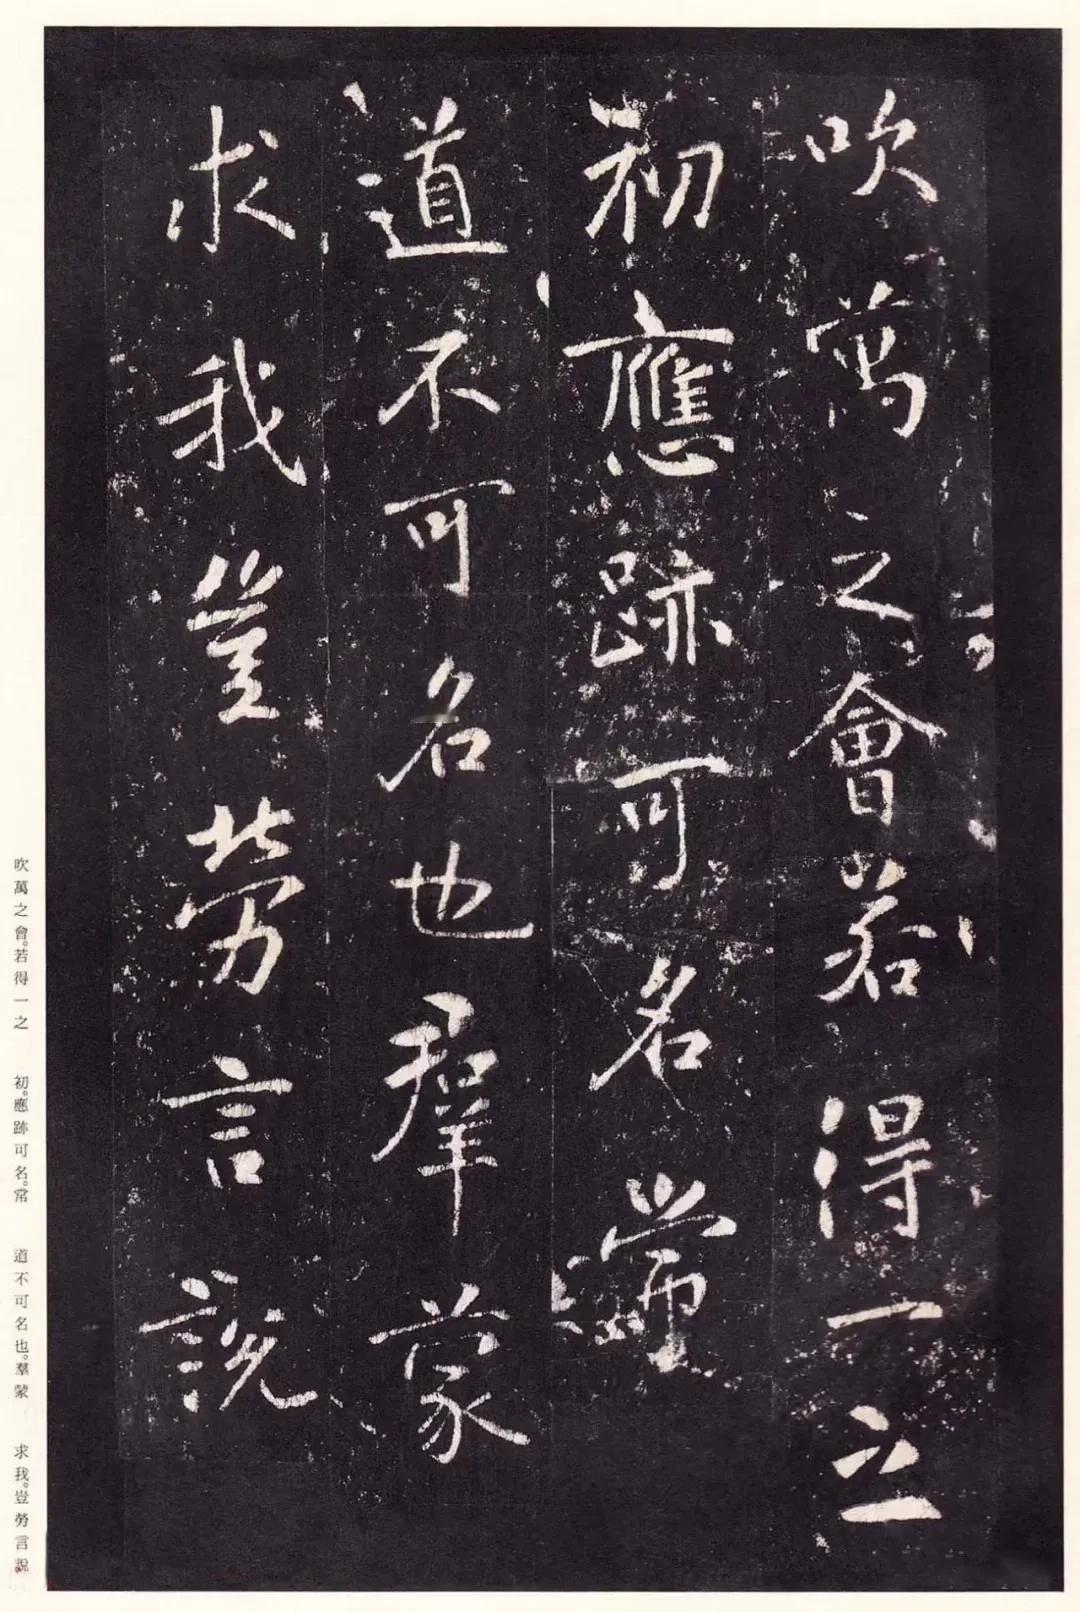 吹萬之會若得一之
初應跡可名常
道不可名也羣蒙
求我豈勞言說
吹萬之會。若得一之　初。應跡可名。常　道不可名也。羣蒙　求我。豈勞言說。